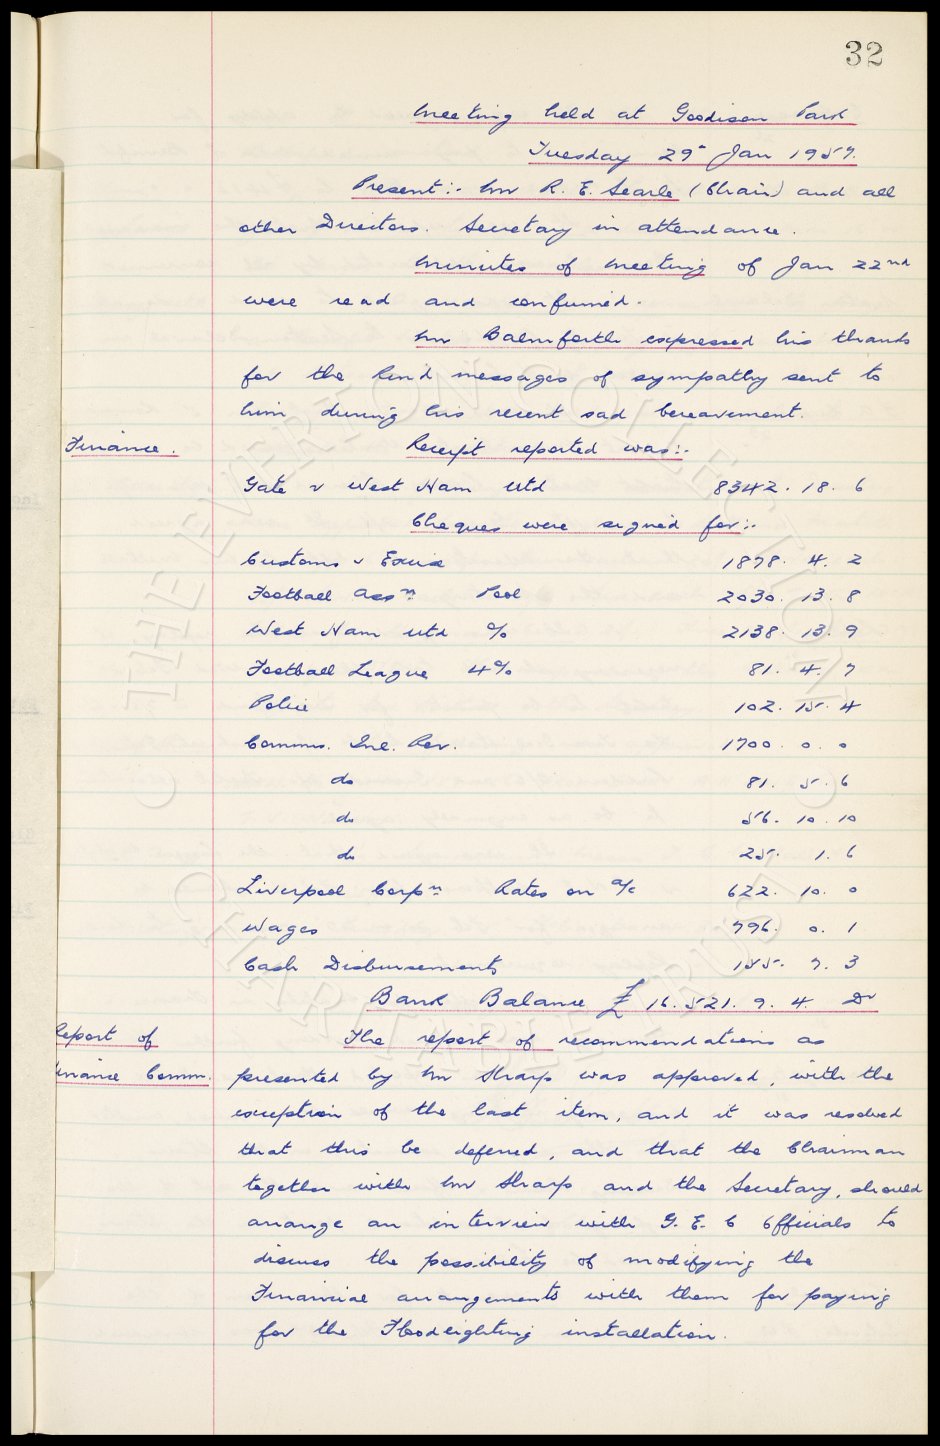 32
Meeting held at Goodison Park
Tuesday 29th Jan 1957.
Present:- Mr R. E. Searle (Chair) and all
other Directors. Secretary in attendance.
Minutes of meeting of Jan 22nd
were read and confirmed.
Mr Balmforth expressed his thanks
for the kind messages of sympathy sent to
him during his recent sad bereavement.
Finance. Receipt reported was:-
Gate v West Ham Utd 8342. 18. 6
Cheques were signed for:-
Customs & Excise 1878. 4. 2
Football Assn. Pool 2030. 13. 8
West Ham Utd % 2138. 13. 9
Football League 4% 81. 4. 7
Police 102. 15. 4
Comms. Inl. Rev. 1700. 0. 0
do 81. 5. 6
do 56. 10. 10
do 25. 1. 6
Liverpool Corpn Rates on a/c 622. 10. 0
Wages 796. 0. 1
Cash Disbursements 155. 7. 3
Bank Balance £ 16.521. 9. 4. Dr
Report of The report of recommendations as
inance Comm. presented by Mr Sharp was approved, with the
exception of the last item, and it was resolved
that this be deferred, and that the Chairman
together with Mr Sharp and the Secretary, should
arrange an interview with G. E. C Officials to
discuss the possibility of modifying the
Financial arrangements with them for paying
for the Floodlighting installation.
© THE EVERTON COLLECTION ©
CHARITABLE TRUST